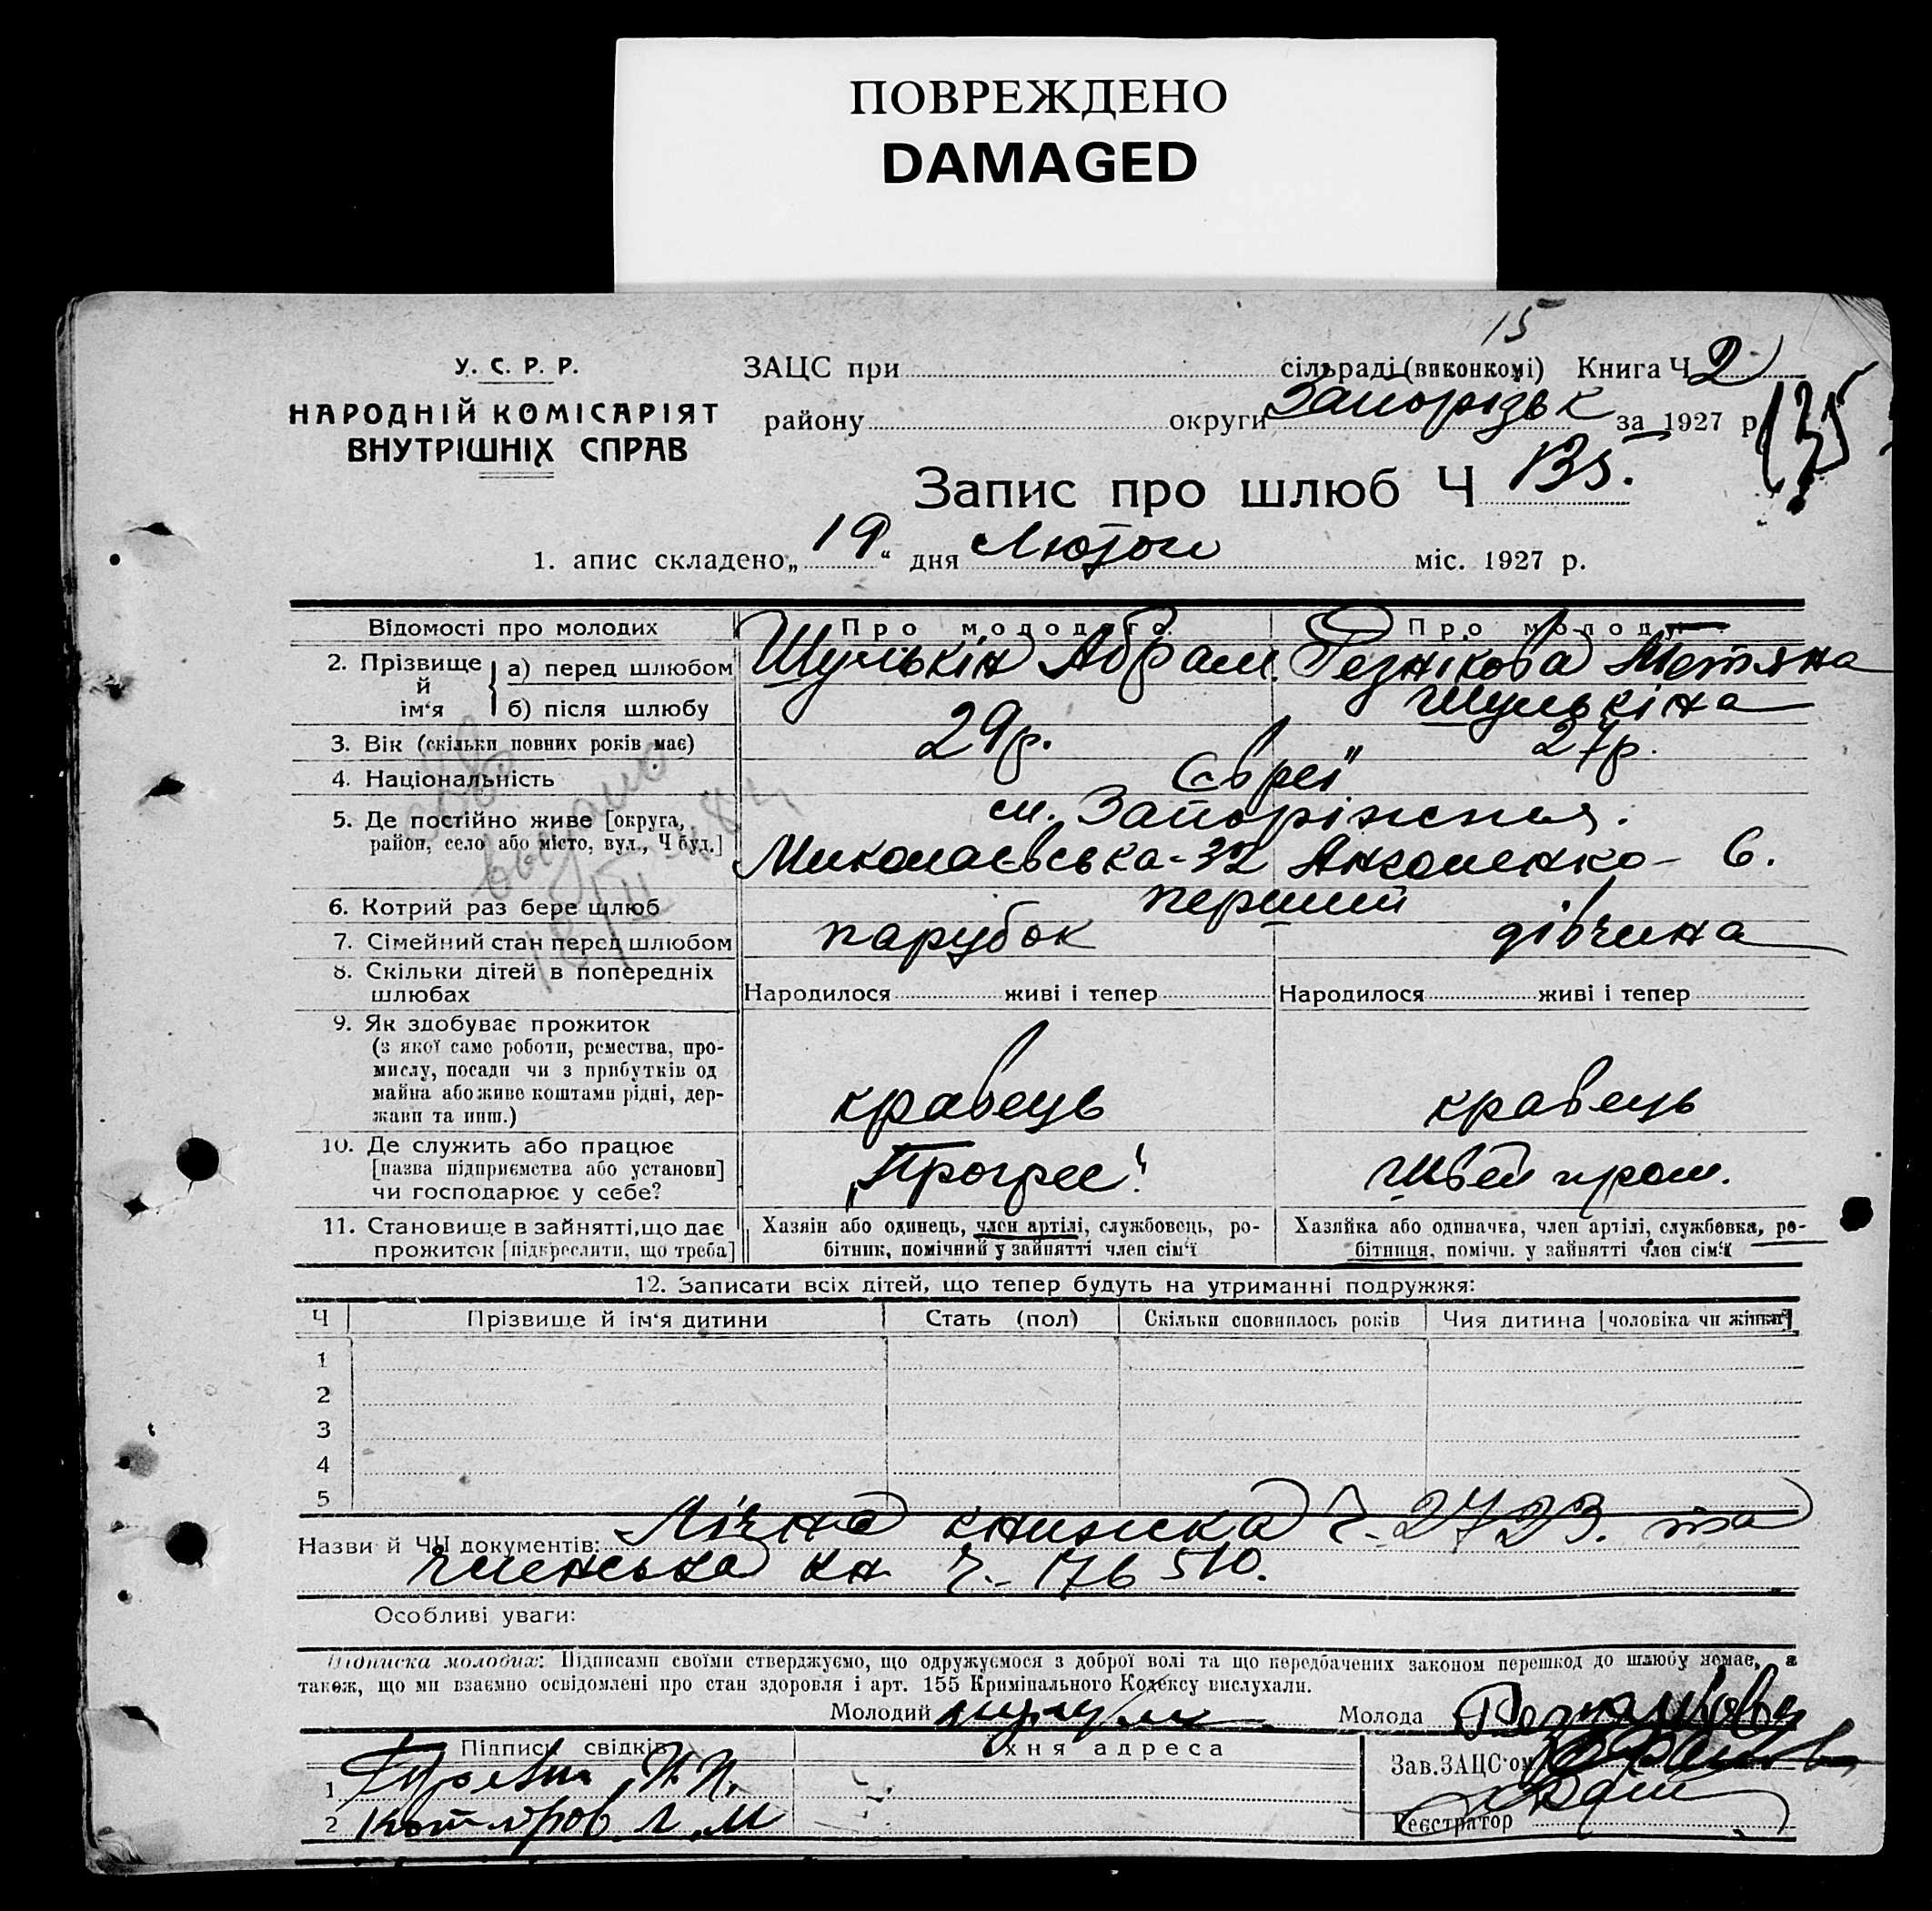 ПОВРЕЖДЕНО
DAMAGED
15
У. С. Р. Р.
НАРОДНІЙ КОМІСАРІЯТ
ВНУТРІШНІХ СПРАВ
ЗАЦС при сільраді (виконкомі) Книга Ч 2
району округи Запорізьк за 1927 р.
135
Запис про шлюб Ч 135.
1. апис складено „19“ дня Лютого міс. 1927 р.
Відомості про молодих Про молодого Про молоду
2. Прізвище й ім‘я а) перед шлюбом Шулькін Абрам. Резнікова Тетяна
б) після шлюбу Шулькіна
3. Вік (скільки повних років має) 29р. 27р.
4. Національність Євреї
5. Де постійно живе [округа, район, село або місто, вул., Ч буд.] м. Запоріжжя.
Миколаєвська-32 6.
6. Котрий раз бере шлюб перший
7. Сімейний стан перед шлюбом парубок дівчина
8. Скільки дітей в попередніх шлюбах Народилося живі і тепер Народилося живі і тепер
9. Як здобуває прожиток
(з якої саме роботи, ремества, про-
мислу, посади чи з прибутків од
майна або живе коштами рідні, дер-
жави та инш.) кравець кравець
10. Де служить або працює
[назва підприємства або установи]
чи господарює у себе? „Прогрес“. Швей пром.
11. Становище в зайнятті, що дає
прожиток [підкреслити, що треба]
Хазяін або одинець, член артілі, службовець, ро-
бітник, помічний у зайнятті член сім‘ї
Хазяйка або одиначка, член артілі, службовка, ро-
бітниця, помічн. у зайнятті член сім‘ї
видано
12. Записати всіх дітей, що тепер будуть на утриманні подружжя:
Ч Прізвище й ім‘я дитини Стать (пол) Скільки сповнилось років Чия дитина [чоловіка чи жінки]
1
2
3
4
5
Назви й ЧЧ документів: Лічна книжка Ч. 2723. та
членська кн. Ч.- 176510.
Особливі уваги:
Підписка молодих: Підписами своїми стверджуємо, що одружуємося з доброї волі та що передбачених законом перешкод до шлюбу немає, а
також, що ми взаємно освідомлені про стан здоровля і арт. 155 Кримінального Кодексу вислухали.
Молодий Молода
Підписи свідків Їхня адреса Зав. ЗАЦС‘ом
1
2 Реєстратор